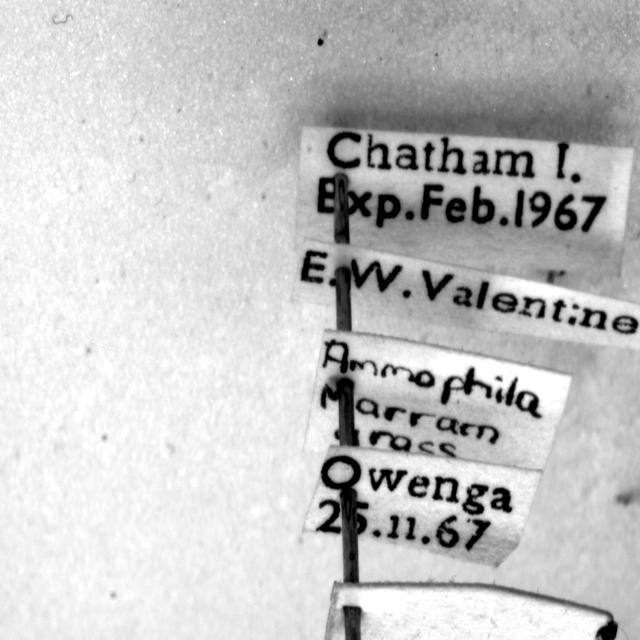 Chatham I.
Exp. Feb. 1967
E. W. Valentine
Ammophila
Marram
Grass
Owenga
25.11.67